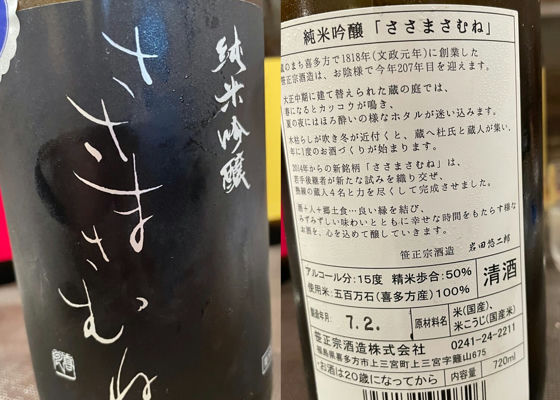 純米吟醸
ささまさむね
純米吟醸「ささまさむね」
のまち喜多方で1818年(文政元年)に創業した
笹正宗酒造は、お陰様で今年207年目を迎えます。
大正中期に建て替えられた蔵の庭では、
春になるとカッコウが鳴き、
夏の夜にはほろ酔いの様なホタルが迷い込みます。
木枯らしが吹き冬が近付くと、蔵へ杜氏と蔵人が集い、
年に1度のお酒づくりが始まります。
2014年からの新銘柄「ささまさむね」は、
若手後継者が新たな試みを織り交ぜ、
熟練の蔵人4名と力を尽くして完成させました。
酒+人+郷土食…良い縁を結び、
みずみずしい味わいとともに幸せな時間をもたらす様な
お酒を、心を込めて醸していきます。
笹正宗酒造 岩田悠二郎
アルコール分:15度 精米歩合:50%
使用米:五百万石(喜多方産)100%
清酒
製造年月 7.2.
原材料名 米(国産)、米こうじ(国産米)
笹正宗酒造株式会社 0241-24-2211
福島県喜多方市上三宮町上三宮字籬山675
お酒は20歳になってから 内容量 720ml